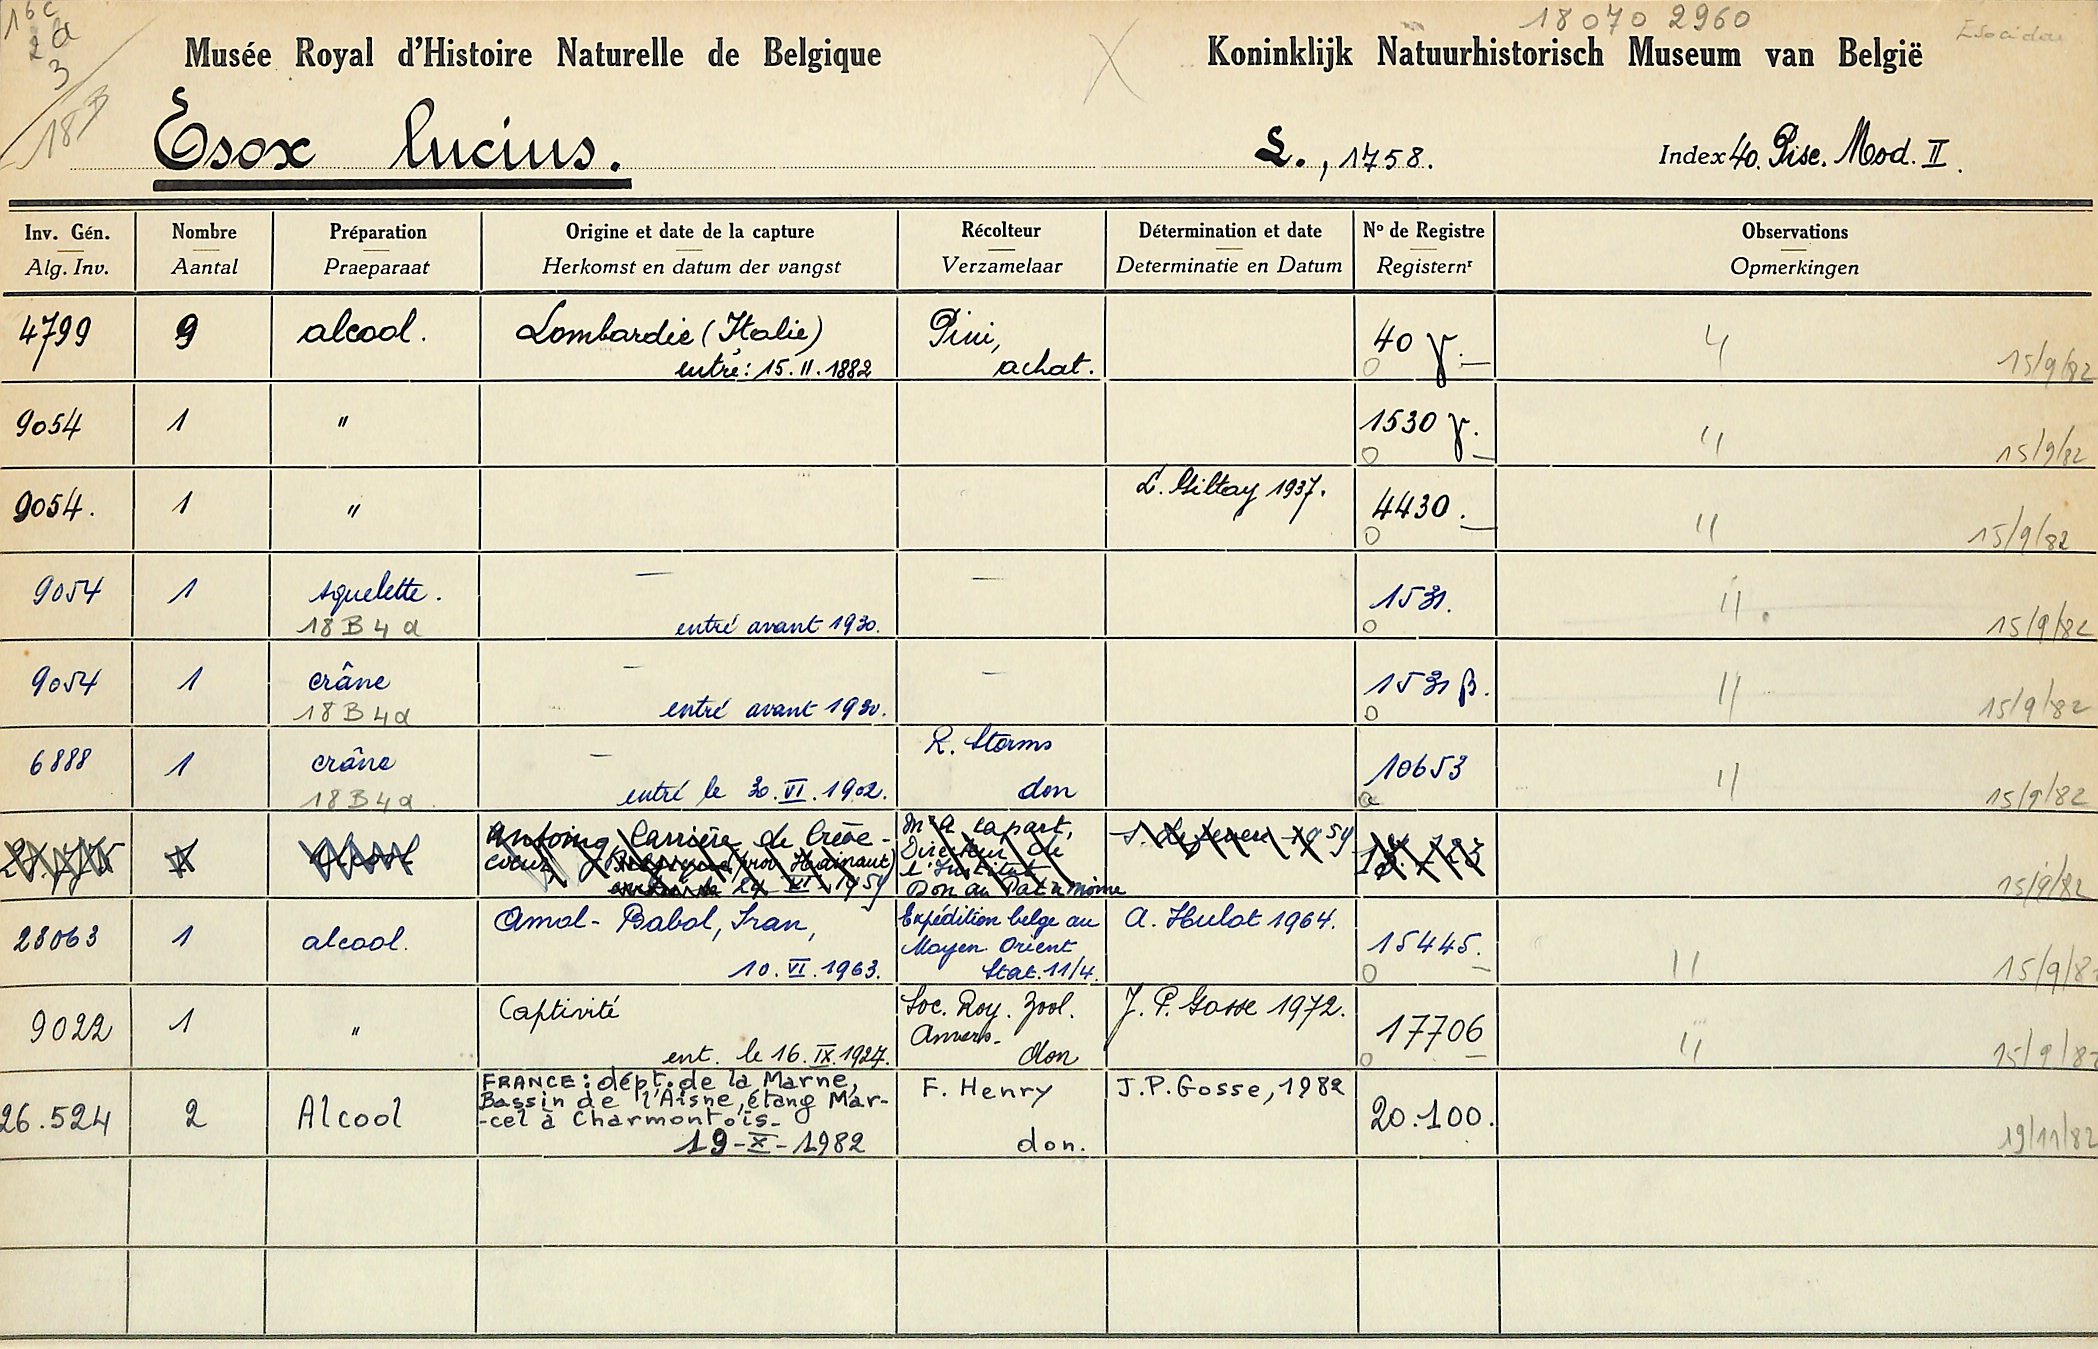 16c
2d
3
18B
18070 2960
Esocidae
Musée Royal d'Histoire Naturelle de Belgique
Koninklijk Natuurhistorisch Museum van België
Esox lucius. L., 1758. Index 40. Pisc. Mod. II.
Inv. Gén. Nombre Préparation Origine et date de la capture Récolteur Détermination et date No de Registre Observations
Alg. Inv. Aantal Praeparaat Herkomst en datum der vangst Verzamelaar Determinatie en Datum Registernr Opmerkingen
4799 9 alcool. Lombardie (Italie) Pini, 40 γ. 〃
entré: 15.II.1882 achat. 15/9/82
9054 1 " 1530 γ. 〃 15/9/82
9054. 1 " L. Giltay 1937. 4430. 〃 15/9/82
9054 1 squelette. — — 1531. 〃
18 B 4 d entré avant 1930. 15/9/82
9054 1 crâne — — 1531 β. 〃
18 B 4 d entré avant 1930. 15/9/82
6888 1 crâne — R. Storms 10653 〃
18 B 4 d entré le 30.VI.1902. don 15/9/82
Antoing Carrière de Crève-
coeur (prov Hainaut)
1959
Mr A Capart,
Directeur de
l'Institut
Don au Patrimoine
1959
15/9/82
23063 1 alcool. Amol-Babol, Iran, Expédition belge au A. Hulot 1964. 15445. 〃
Moyen Orient
10.VI.1963. Stat. 11/4. 15/9/82
9022 1 " Captivité Soc. Roy. Zool. J. P. Gosse 1972. 17706 〃
Anvers.
ent. le 16.IX.1927. don 15/9/82
26.524 2 Alcool FRANCE: dépt. de la Marne, F. Henry J.P. Gosse, 1982 20.100.
Bassin de l'Aisne, étang Mar-
-cel à Charmontois-
19-X-1982 don. 19/11/82